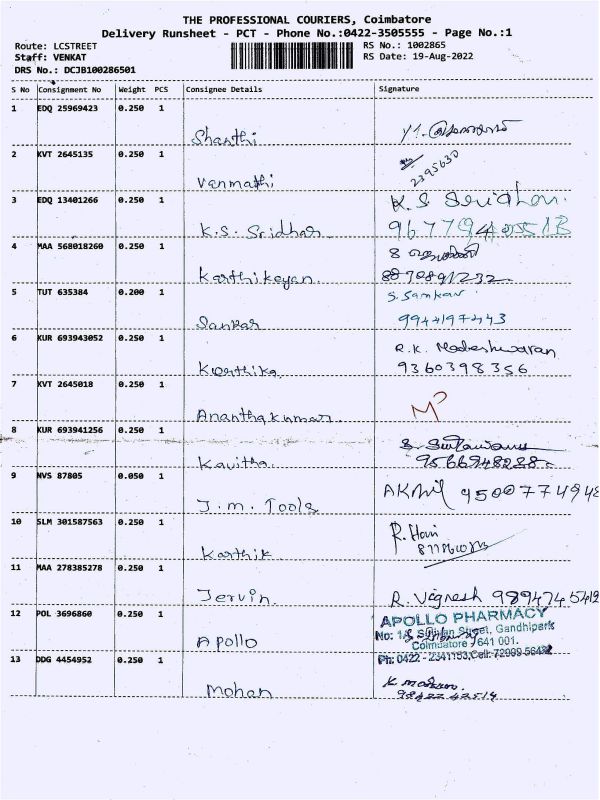 THE PROFESSIONAL COURIERS, Coimbatore
Delivery Runsheet - PCT - Phone No.:0422-3505555 - Page No.:1
Route: LCSTREET
RS No.: 1002865
Staff: VENKAT
RS Date: 19-Aug-2022
DRS No.: DCJB100286501
S No Consignment No Weight PCS Consignee Details Signature
1 EDQ 25969423 0.250 1
Shanthi
2 KVT 2645135 0.250 1
2395630
Vanmathi
3 EDQ 13401266 0.250 1
K.S Sridhar.
K.S. Sridhar
4 MAA 568018260 0.250 1
Karthikeyan. 8870891232
5 TUT 635384 0.200 1
S. Sankar
Sankar 9944197443
6 KUR 693943052 0.250 1
R.K. Madeshwaran
Karthika 9360398356
7 KVT 2645018 0.250 1
Ananthakumar
8 KUR 693941256 0.250 1
Kavitha 9566948288
9 NVS 87805 0.050 1
9500774948
J.M. Tools
10 SLM 301587563 0.250 1
R. Hari
Karthik
11 MAA 278385278 0.250 1
Jervin. R. Vignesh 9894745412
12 POL 3696860 0.250 1
APOLLO PHARMACY
Street, Gandhipark
Apollo Coimbatore 641 001.
13 DDG 4454952 0.250 1
Ph: 0422 - 2341153, Cell: 72999 56482
Mohan